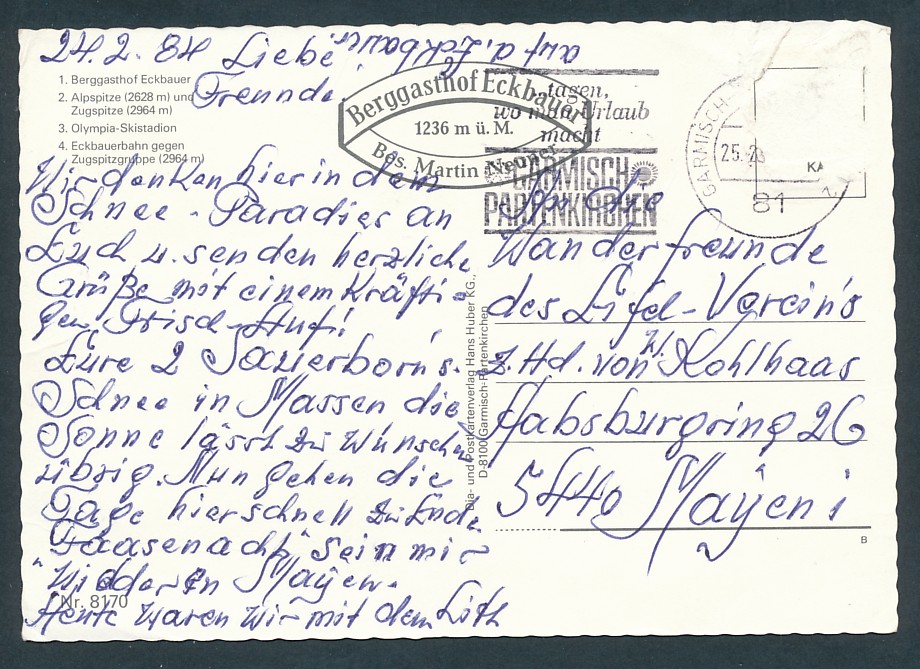 24.2.84 Liebe
Freunde!
Wir denken hier in dem
Schnee-Paradies an
Euch u. senden herzliche
Grüße mit einem kräfti-
gen Frisch-Auf!
Eure 2 Sauerborns.
Schnee in Massen die
Sonne lässt zu wünschen
übrig. Nun gehen die
Tage hier schnell zu Ende
"Faasenacht" sein mir
widder in Mayen.
Heute waren wir mit dem Lift
auf d. Eckbauer
1. Berggasthof Eckbauer
2. Alpspitze (2628 m) und
Zugspitze (2964 m)
3. Olympia-Skistadion
4. Eckbauerbahn gegen
Zugspitzgruppe (2964 m)
Nr. 8170
Berggasthof Eckbauer
1236 m ü. M.
Bes. Martin Neuner
tagen,
wo man Urlaub
macht
GARMISCH
PARTENKIRCHEN
GARMISCH-
25.
81
KA
Dia- und Postkartenverlag Hans Huber KG.,
D-8100 Garmisch-Partenkirchen
An die
Wanderfreunde
des Eifel-Vereins
z.Hd. von W. Kohlhaas
Habsburgring 26
5440 Mayen 1
B